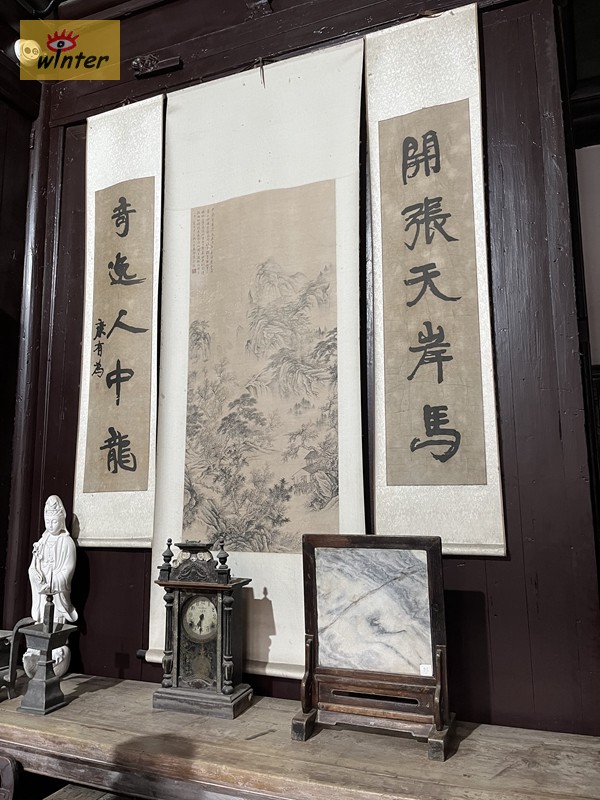 winter
開張天岸馬
奇逸人中龍
康有為